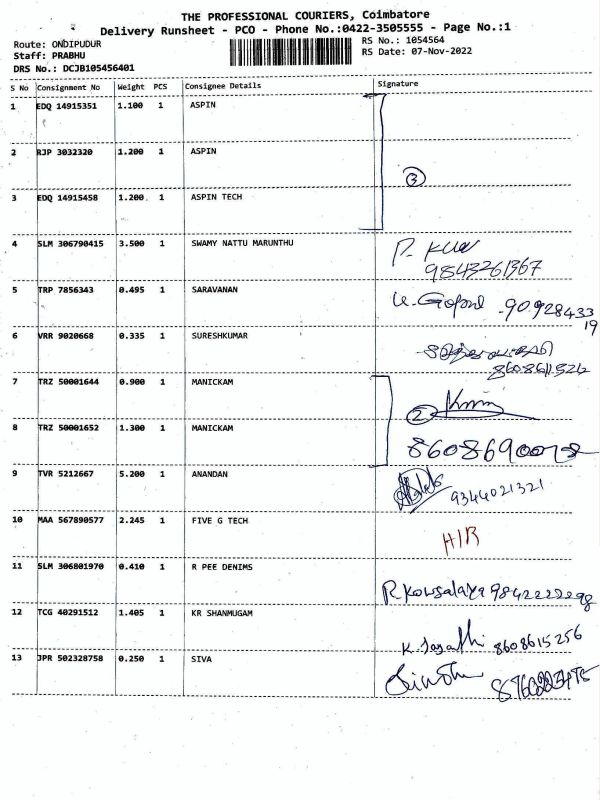 THE PROFESSIONAL COURIERS, Coimbatore
Delivery Runsheet - PCO - Phone No.:0422-3505555 - Page No.:1
Route: ONDIPUDUR
RS No.: 1054564
Staff: PRABHU
RS Date: 07-Nov-2022
DRS No.: DCJB105456401
S No Consignment No Weight PCS Consignee Details Signature
1 EDQ 14915351 1.100 1 ASPIN
2 RJP 3032320 1.200 1 ASPIN
3
3 EDQ 14915458 1.200 1 ASPIN TECH
4 SLM 306790415 3.500 1 SWAMY NATTU MARUNTHU
9843261367
5 TRP 7856343 0.495 1 SARAVANAN
6 VRR 9020668 0.335 1 SURESHKUMAR
7 TRZ 50001644 0.900 1 MANICKAM
2
8 TRZ 50001652 1.300 1 MANICKAM
9 TVR 5212667 5.200 1 ANANDAN
9344021321
10 MAA 567890577 2.245 1 FIVE G TECH
11 SLM 306801970 0.410 1 R PEE DENIMS
R. Kowsalaya
12 TCG 40291512 1.405 1 KR SHANMUGAM
8608615256
13 JPR 502328758 0.250 1 SIVA